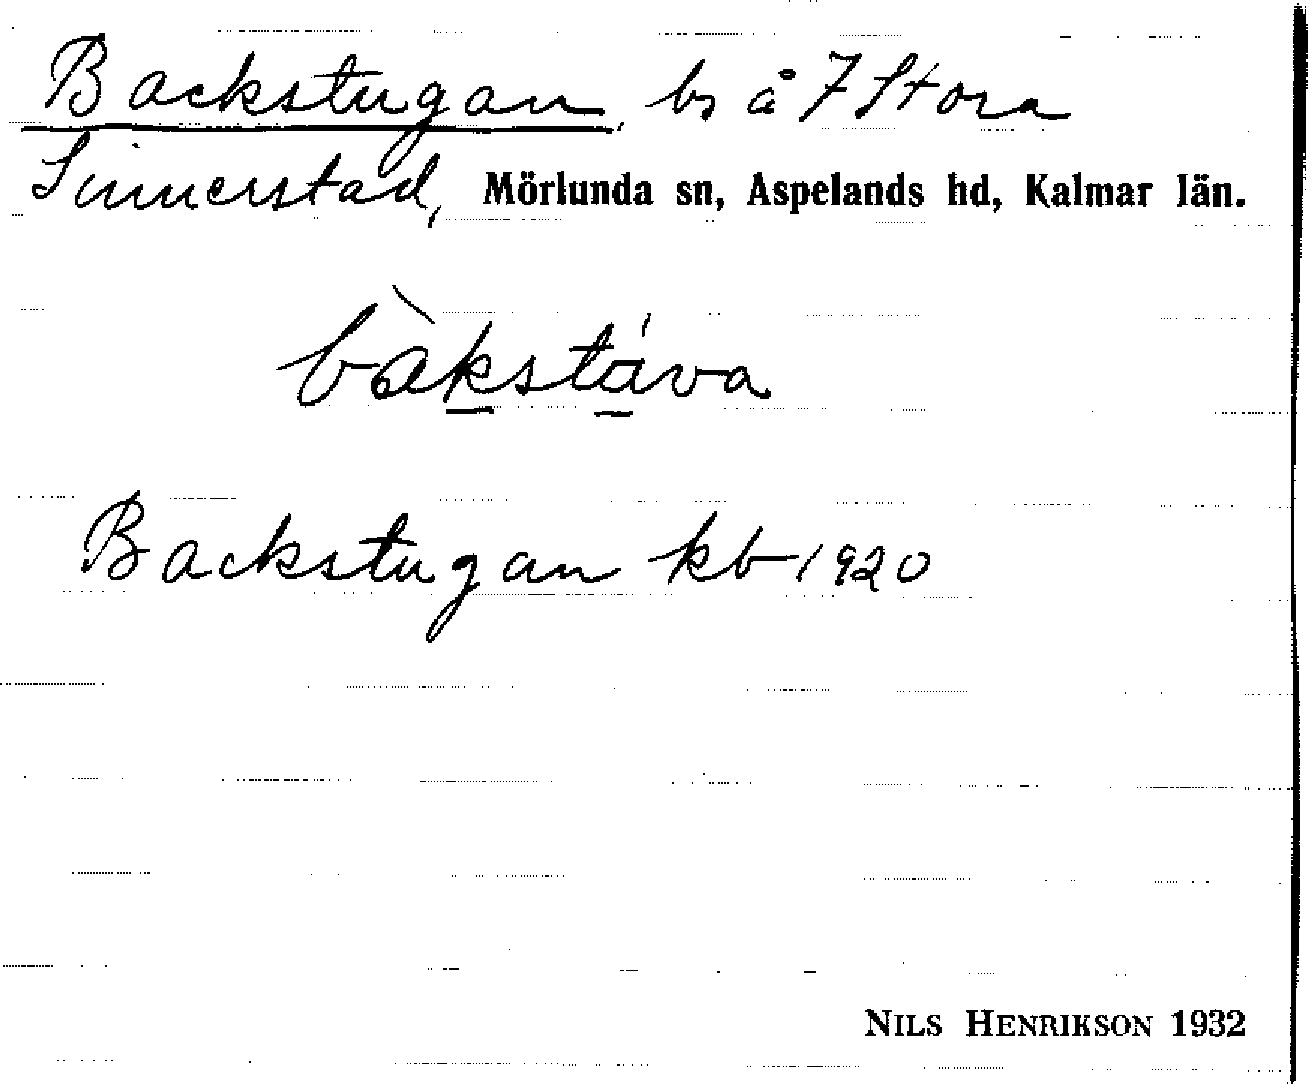 Backstugan, bs å 7 Stora
Sinnerstad, Mörlunda sn, Aspelands hd, Kalmar län.
bàkstáva
Backstugan kb 1920
NILS HENRIKSON 1932